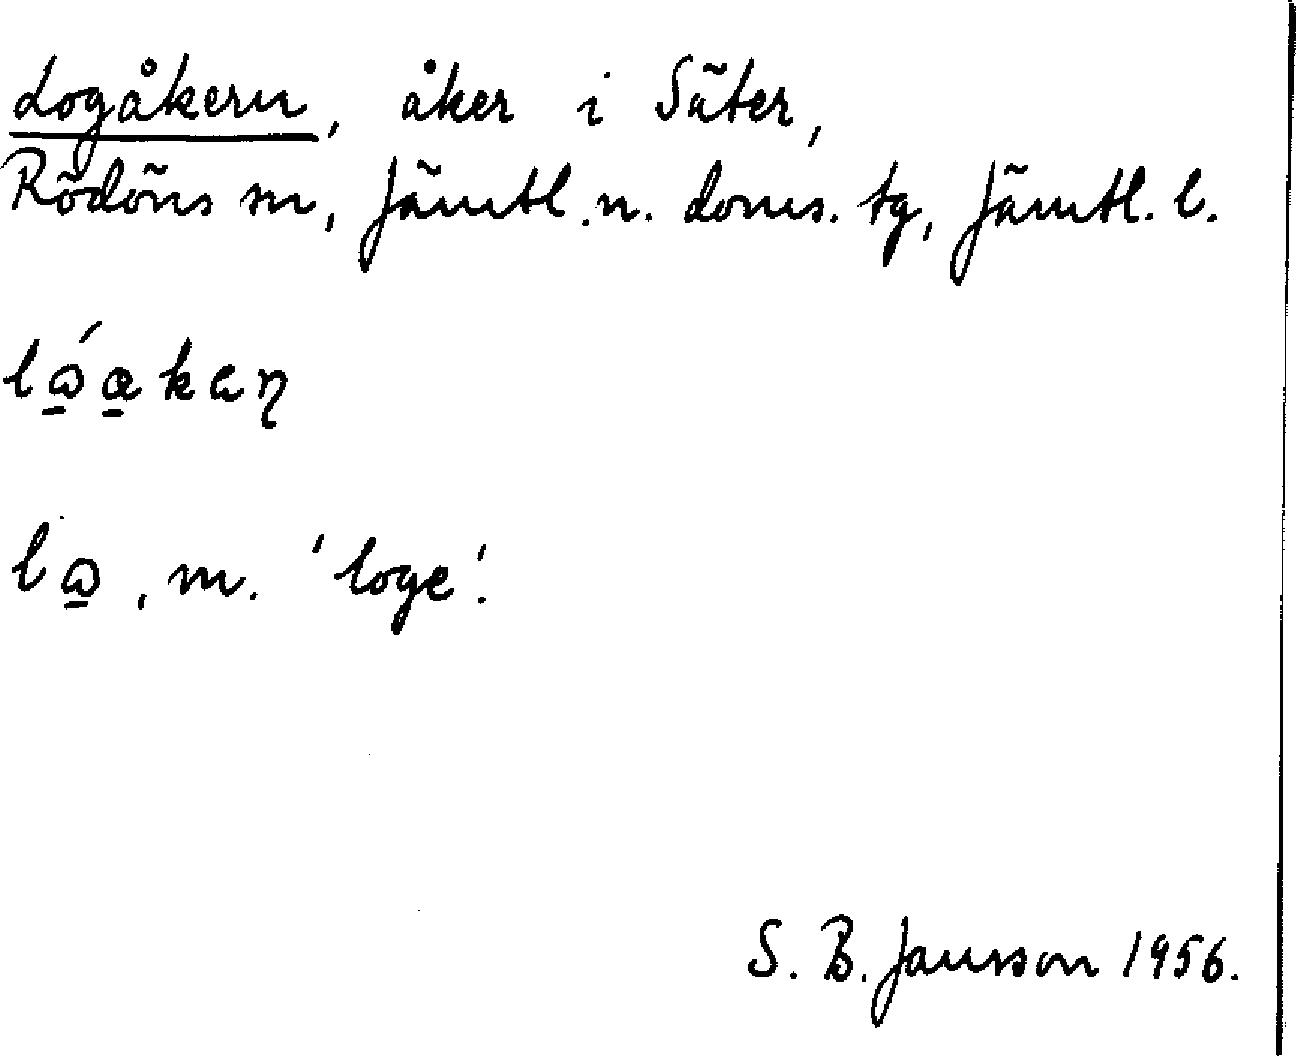 Logåkern, åker i Säter,
Rödöns sn, Jämtl. n. doms. tg, Jämtl. l.
lo̱, m. 'loge'.
S. B. Jansson 1956.